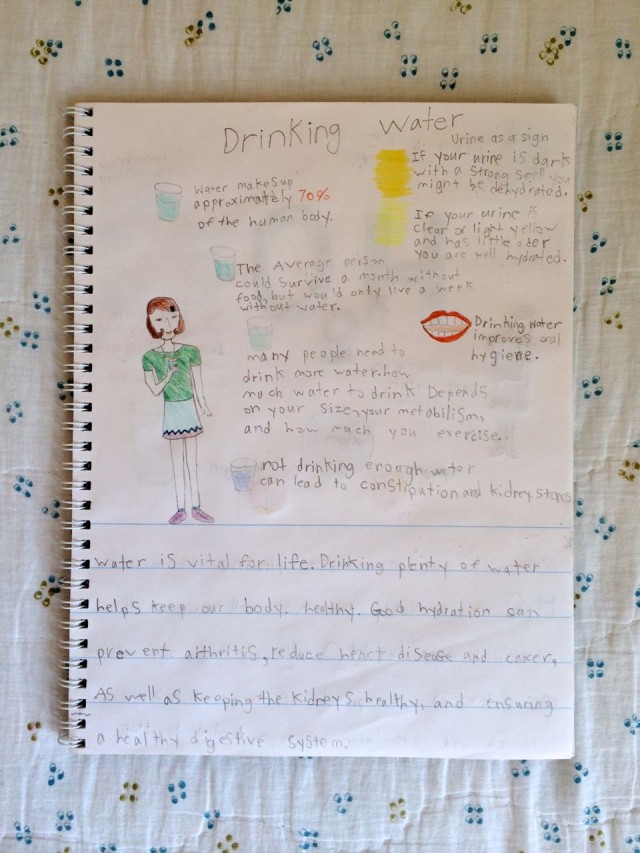 Drinking Water
Urine as a sign
If your urine is dark
with a strong smell you
might be dehydrated.
If your urine is
clear or light yellow
and has little odor
you are well hydrated.
Water makes up
approximately 70%
of the human body.
The Average person
could survive a month without
food, but would only live a week
without water.
Drinking water
improves oral
hygiene.
many people need to
drink more water. how
much water to drink Depends
on your size, your metabilism,
and how much you exercise.
not drinking enough water
can lead to constipation and kidney stones
water is vital for life. Drinking plenty of water
helps keep our body. healthy. Good hydration can
prevent arthritis, reduce heart disease and cancer,
As well as keeping the kidneys. healthy, and ensuring
a healthy digestive system.